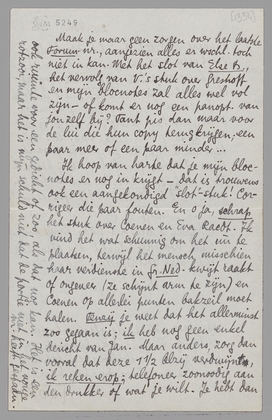 5249
Maak je maar geen zorgen over het laatste
Forum nr., aangezien alles er wscht. toch
niet in kan. Met het slot van Else B.,
het vervolg van V.'s stuk over Greshoff
en mijn blocnotes zal alles wel vol
zijn – of komt er nog een panopt. van
jonzelf bij? Vant pis dan maar voor
de lui die hun copy terugkrijgen, een
paar meer of een paar minder...
Ik hoop van harte dat je mijn bloc-
notes er nog in krijgt – dat is trouwens
ook een aangekondigd "slot"-stuk! Cor-
rigeer die paar fouten. En o ja, schrap
het stuk over Coenen en Eva Raedt. Ik
vind het wat schunnig om het nu te
plaatsen, terwijl het mensch misschien
haar verdienste in Gr. Ned. kwijt raakt
of ongeveer (ze schijnt arm te zijn) en
Coenen op allerlei punten bakzeil moet
halen. Tenzij je weet dat het allerminst
zoo gegaan is; ik heb nog geen enkel
bericht van Jan. Maar anders, zorg dan
vooral dat deze 1 1/2 blzij verdwijnt,
ik reken erop; telefoneer zoonoodig aan
den drukker of wat je wilt. Je hebt dan
ook ruimte voor een gedicht of zoo, als dat nog kan. Het is een
rotzooi, maar het is mijn schuld niet dat de